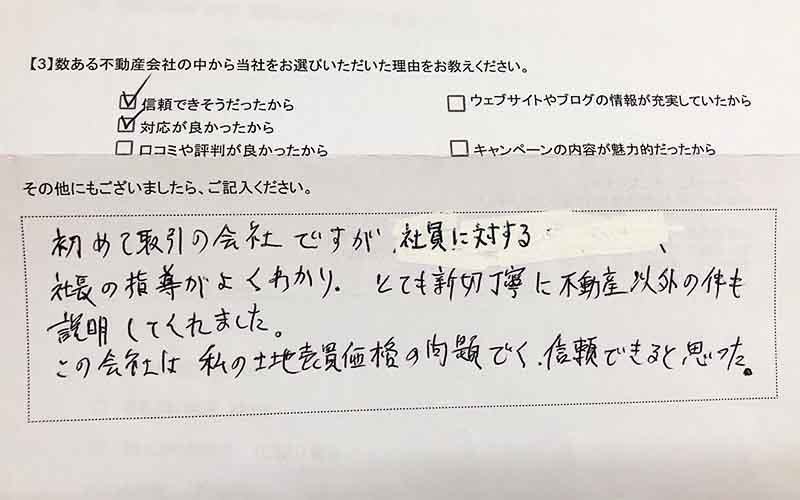 【3】数ある不動産会社の中から当社をお選びいただいた理由をお教えください。
信頼できそうだったから
ウェブサイトやブログの情報が充実していたから
対応が良かったから
口コミや評判が良かったから
キャンペーンの内容が魅力的だったから
その他にもございましたら、ご記入ください。
初めて取引の会社ですが、社員に対する 、
社長の指導がよくわかり、とても新切丁寧に不動産以外の件も
説明してくれました。
この会社は私の土地売買価格の問題でく、信頼できると思った。